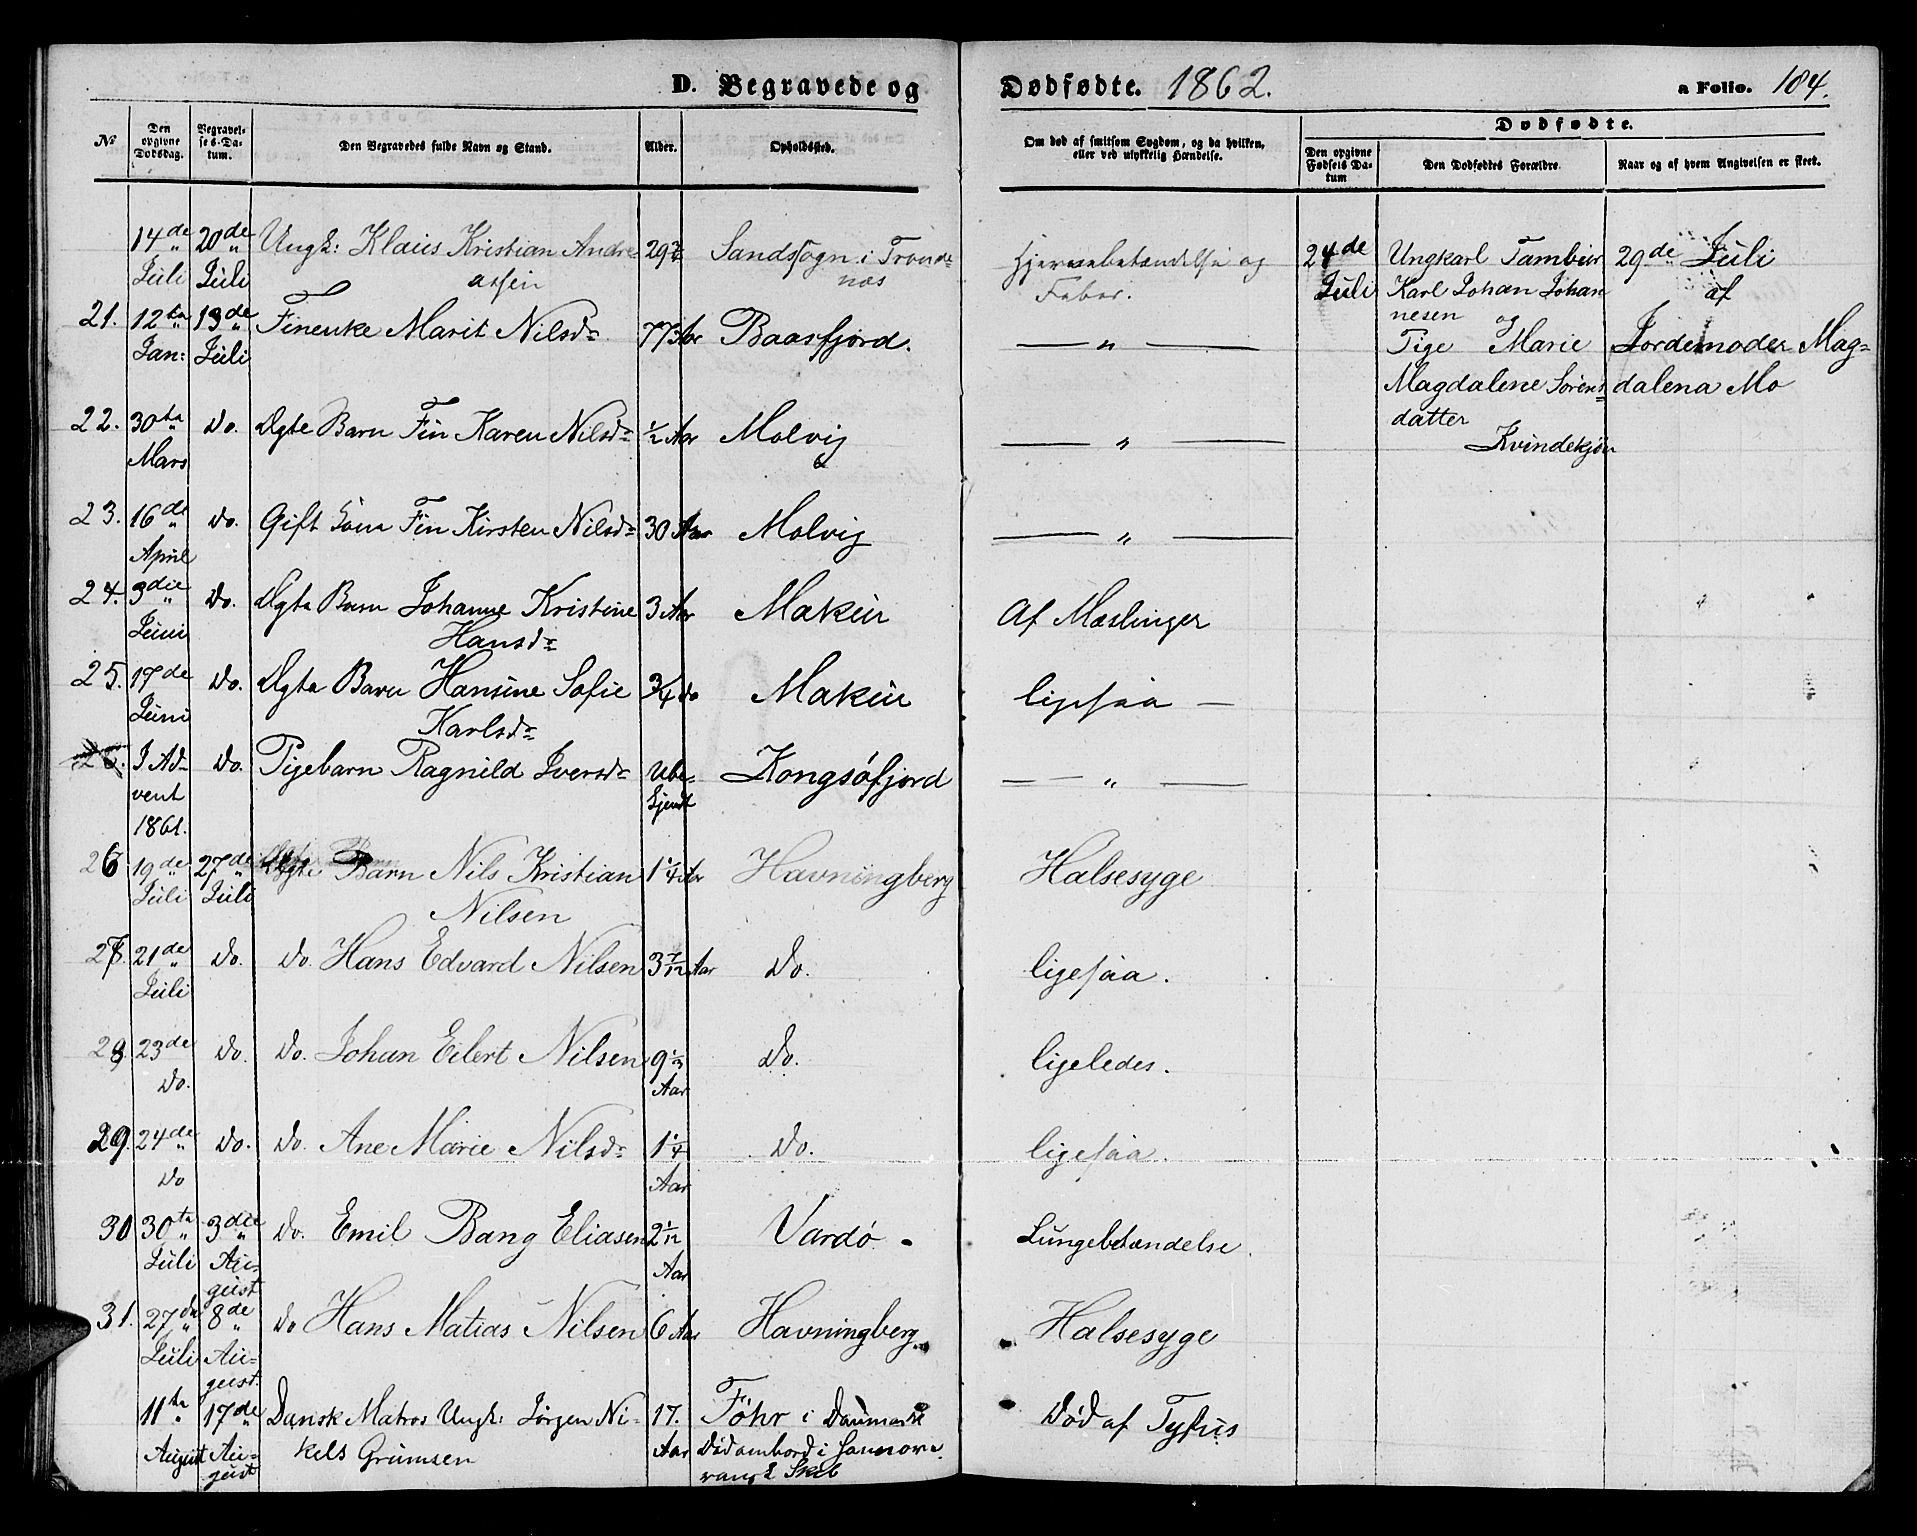 D. Begravede og Dødfødte. 1862. a Folio. 184.
Nº
Den opgivne Dødsdag.
Begravelses-Datum.
Den Begravedes fulde Navn og Stand.
Alder.
Opholdssted.
Om død af smitsom Sygdom, og da hvilken, eller ved ulykkelig Hændelse.
Dødfødte.
Den opgivne Fødsels Datum
Den Dødfødtes Forældre.
Naar og af hvem Angivelsen er skeet.
14de 20de Ungk: Klaus Kristian Andre- 29 Sandsogn i Tronde- Hjernebetændelse og
Juli Juli assen næs Feber.
24de Ungkarl Tambur 29de Juli
Juli Karl Johan Johan af
nesen
Pige Marie Jordemoder Mag=
Magdalene Sørens dalena Mo
datter
Kvindekjøn
21. 12te 13de Finenke Marit Nilsd= 77 Aar Baasfjord. — " —
Jan: Juli
22. 30te Do. Ægte Barn Fin Karen Nilsd= ½ Aar Molvig — " —
Mars
23. 16de Do. Gift Kona Fin Kirsten Nilsd= 30 Aar Molvig — " —
April
24. 3die Do. Ægte Barn Johanne Kristine 3 Aar Makur Af Mæslinger
Juni Hansd=
25. 17de Do. Ægte Barn Hansine Sofie ¾ Do Makur ligesaa —
Juni Karlsd=
26. I Ad- Do. Pigebarn Ragnild Iversd= Ube- Kongsøfjord — " —
vent kjendt
1861.
26 19de 27de Ægte Barn Nils Kristian 1¼ Aar Havningberg Halsesyge
Juli Juli Nilsen
27. 21de Do. Do. Hans Edvard Nilsen 3 7/12 Aar Do. ligesaa.
Juli
28 23de Do. Do. Johan Eilert Nilsen 9½ Do. ligeledes.
Do. Aar
29. 24de Do. Do. Ane Marie Nilsd= 1¼ Do. ligesaa.
Do Aar
30 30te 3die Do. Emil Bang Eliasen 2 1/12 Vardø - Lungebetændelse.
Juli Au- Aar
gust
31. 27de 8de Do Hans Matias Nilsen 6 Aar Havningberg. Halsesyge
Juli Au-
gust.
11te 17de Dansk Matros Ungk: Jørgen Ni- 17. Föhr i Danmark Død af Tyfus
August Au- kels Grumsen Aar Død ombord i Hannove-
gust ransk Skib